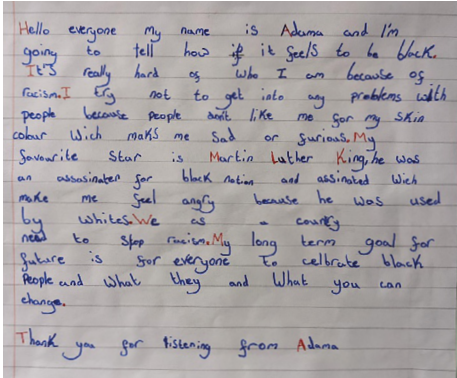 Hello everyone my name is Adama and I'm
going to tell how if it feels to be black.
It's really hard of who I am because of
racism. I try not to get into any problems with
people because people don't like me for my skin
colour Wich maks me sad or furious. My
favourite star is Martin Luther King, he was
an assasinater for black nation and assinated wich
make me feel angry because he was used
by whites. We as a country
need to stop racism. My long term goal for
future is for everyone to celbrate black
People and what they and what you can
change.
Thank you for listening from Adama